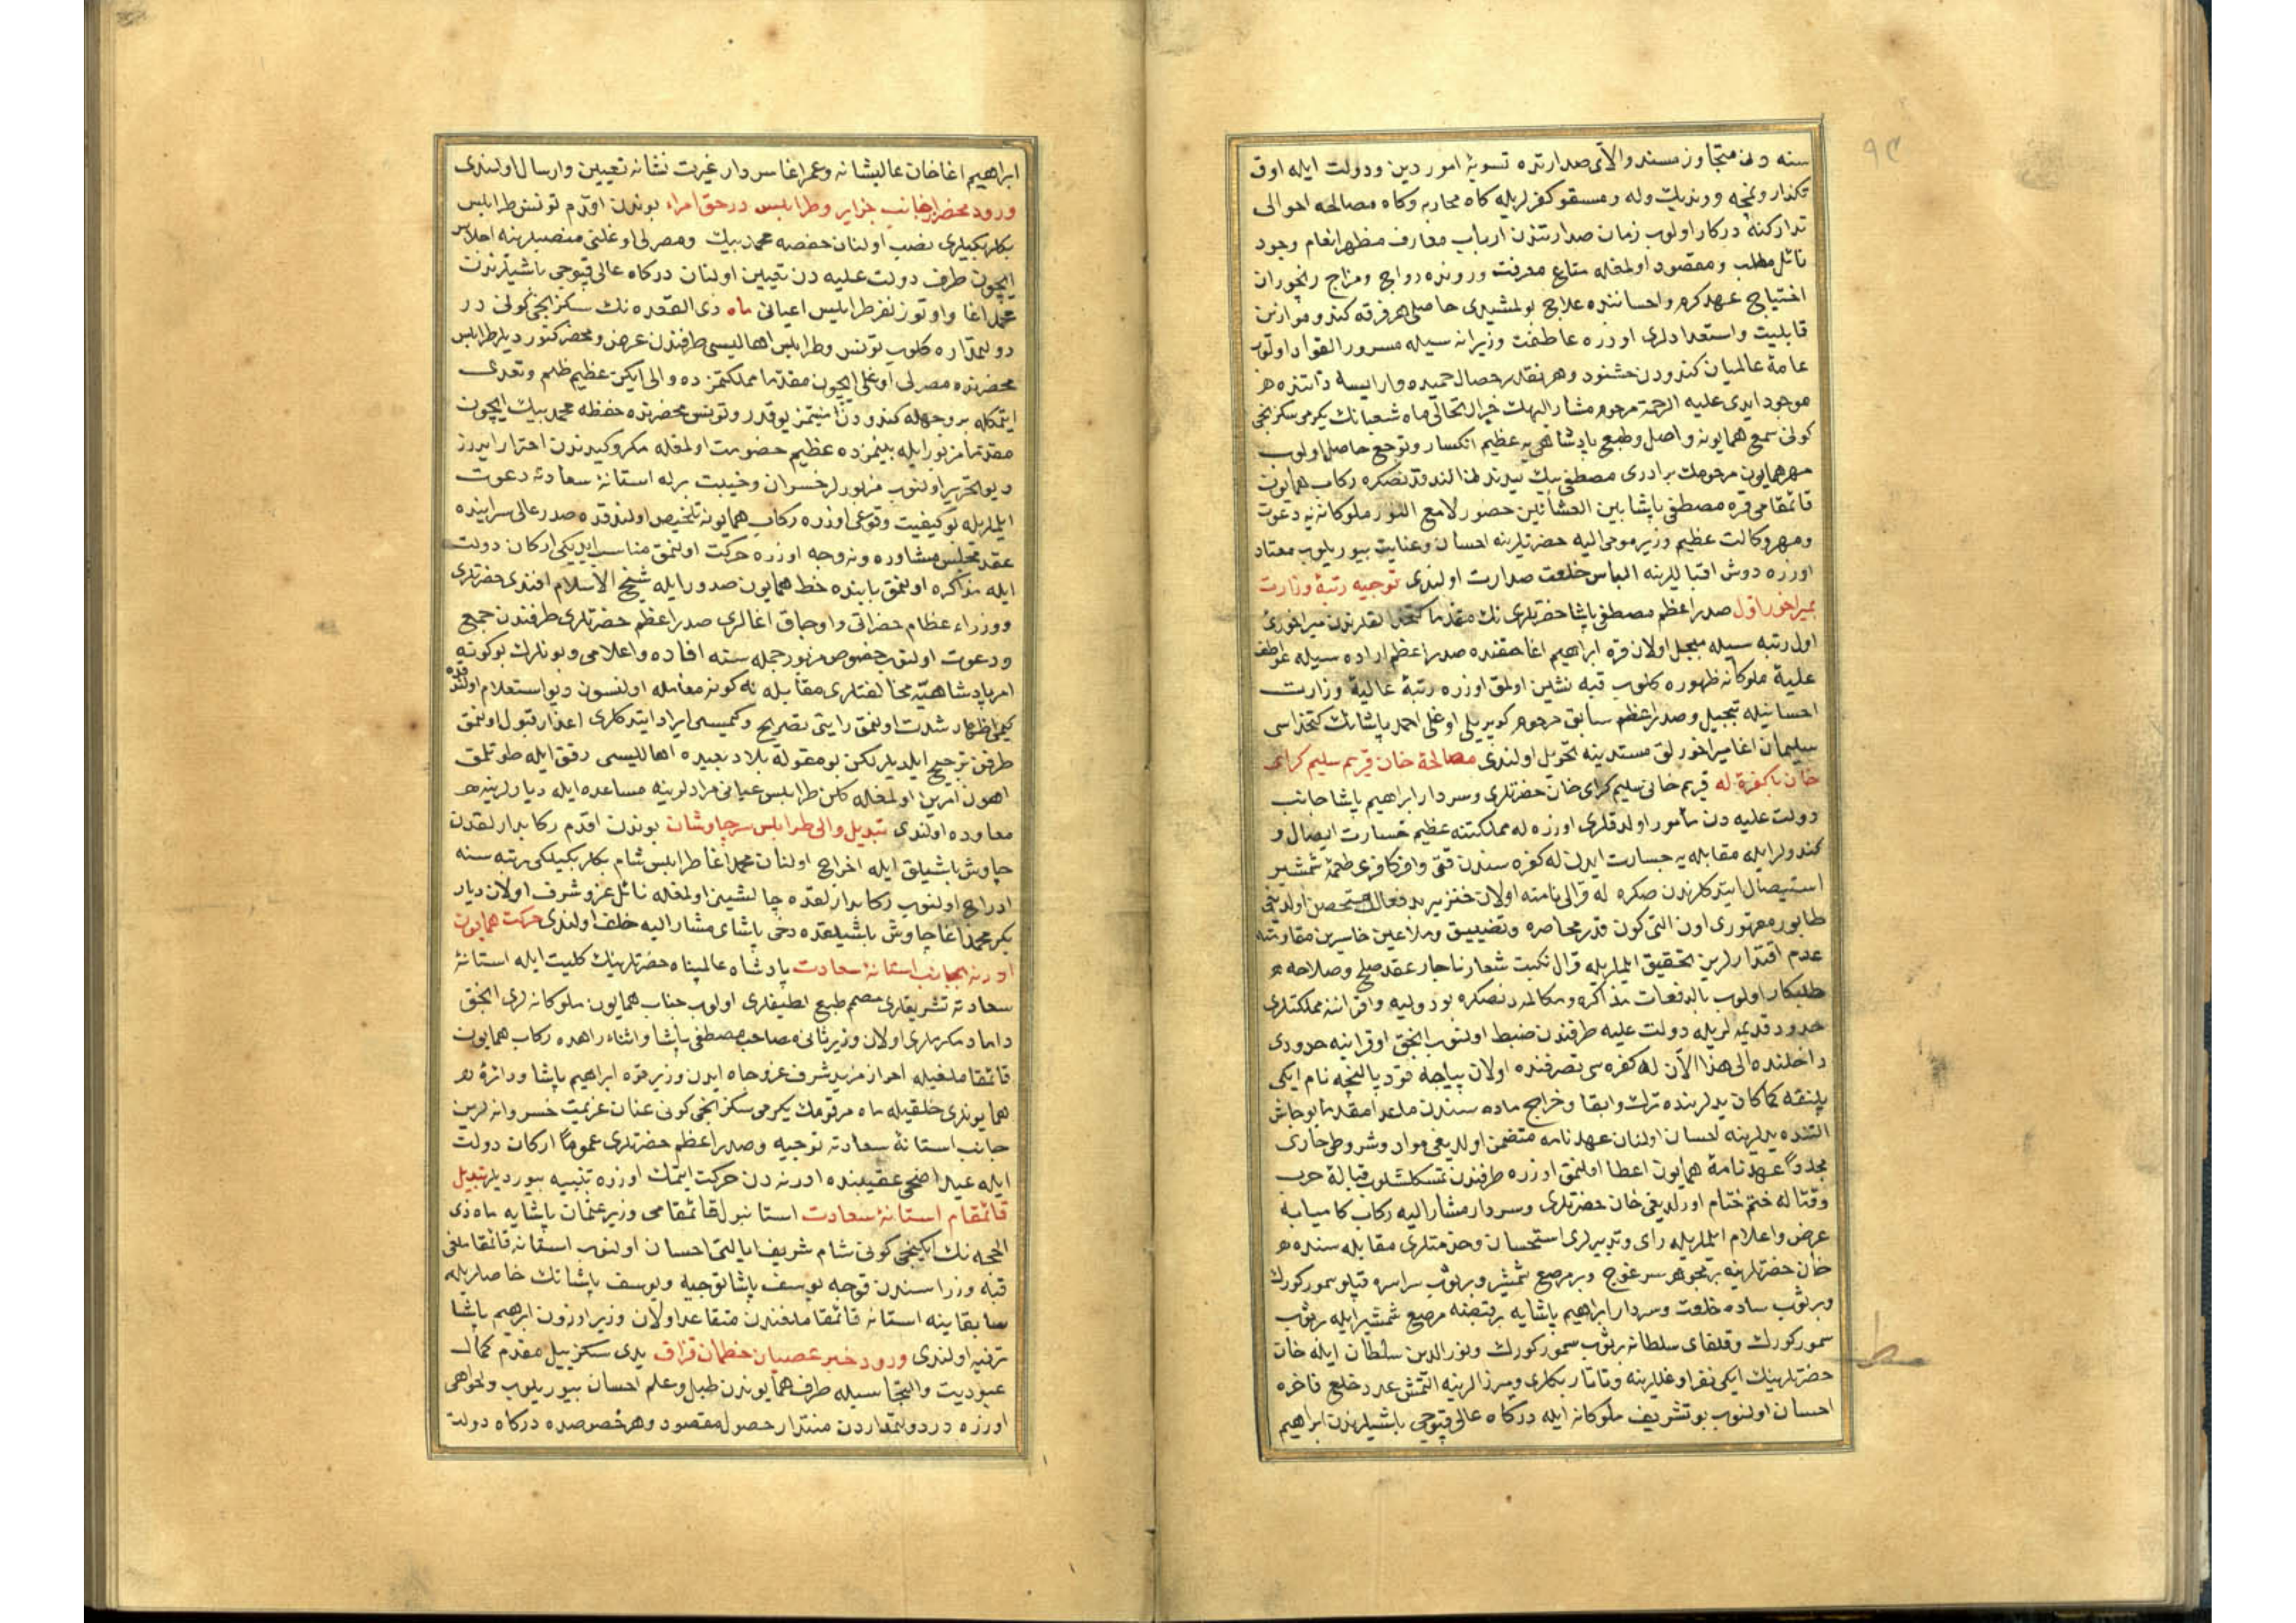 سنه دن متجاوز مسند والای صدارتده تسویهٔ امور دین ودولت ایله اوقات
کذار ونمچه ووندیك وله ومسقو کفره لریله کاه محاربه وکاه مصالحه احوالی
تدارکنه درکار اولوب زمان صدارتندن ارباب معارف مظهر انعام وجود
نائل مطلب ومقصود اولمغله متاع معرفت ورونده رواج ومزاج رنجوران
احتیاج عهد کرم واحساننده علاج بولمشیدی حاصلی هر فرقه کندو موازین
قابلیت واستعدادلری اوزره عاطفت وزیرانه سیله مسرور الفواد اولوب
عامهٔ عالمیان کندودن خشنود وهر نقدر خصال حمیده وار ایسه ذاتنده
موجود ایدی علیه الرحمة مرحوم مشار الیهك خبر ارتحالی ماه شعبانك یکرمی سکزنجی
کونی سمع همایونه واصل وطبع پادشاهی یه عظیم انکسار وتوجع حاصل اولوب
مهر همایون مرحومك برادری مصطفی بیك یدندن الندقدنصکره رکاب همایون
قائمقامی قره مصطفی پاشا بین العشائین حضور لامع النور ملوکانه یه دعوت
ومهر وکالت عظمی وزیر مومی الیه حضرتلرینه احسان وعنایت بیوریلوب معتاد
اوزره دوش اقباللرینه الباس خلعت صدارت اولندی توجیه رتبهٔ وزارت
بمیراخور اول صدر اعظم مصطفی پاشا حضرتلری نك مقدما کتخدالقلرندن میراخوری
اول رتبه سیله مبجل اولان قره ابراهیم اغا حقنده صدر اعظم اراده سیله عواطف
علیهٔ ملوکانه ظهوره کلوب قبه نشین اولمق اوزره رتبهٔ عالیهٔ وزارت
احسانیله تبجیل وصدر اعظم سابق مرحوم کوپریلی اوغلی احمد پاشانك کتخداسی
سلیمان اغا میراخورلق مسندینه تحویل اولندی مصالحهٔ خان قریم سلیم کرای
خان با کفرهٔ له قریم خانی سلیم کرای خان حضرتلری وسردار ابراهیم پاشا جانب
دولت علیه دن مأمور اولدقلری اوزره له مملکتنه عظیم خسارت ایصال و
کندولر ایله مقابله یه جسارت ایدن له کفره سندن قتی وافر کافری طعمهٔ شمشیر
استیصال ایتدکلرندن صکره له قرالی نامنه اولان خنزیر بدفعالك متحصن اولدیغی
طابور مقهوری اون التی کون قدر محاصره وتضییق وملاعین خاسرین مقاومته
عدم اقتدارلرین تحقیق ایلملریله قرال نکبت شعار ناچار عقد صلح وصلاحه
طلبکار اولوب بالدفعات مذاکره ومکالمه دنصکره پودولیه واوقراینه مملکتلری
حدود قدیمه لریله دولت علیه طرفندن ضبط اولنوب انجق اوقراینه حدودی
داخلنده الی هذا الآن له کفره سی تصرفنده اولان نام ایکی
پلنقه کماکان یدلرنده ترك وابقا وخراج ماده سندن ماعدا مقدما بوجاش
التنده یدلرینه احسان اولنان عهدنامه متضمن اولدیغی مواد وشروطی جاری
مجدداً عهدنامهٔ همایون اعطا اولنمق اوزره طرفندن تمسکلشلوب قبالهٔ حرب
وقتاله ختم ختام اورلدیغی خان حضرتلری وسردار مشار الیه رکاب کامیابه
عرض واعلام ایلملریله رای وتدبیرلری استحسان وخدمتلری مقابله سنده
خان حضرتلرینه بر مجوهر سرغوج وبر مرصع شمشیر وبر ثوب سراسره قپلو سمور کورك
وبر ثوب ساده خلعت وسردار ابراهیم پاشایه بر قبضه مرصع شمشیر ایله بر ثوب
سمور کورك وقلغای سلطانه بر ثوب سمور کورك ونور الدین سلطان ایله خان
حضرتلرینك ایکی نفر اوغللرینه وتاتار بکلری ومیرزالرینه التمش عدد خلع فاخره
احسان اولنوب بو تشریف ملوکانه ایله درکاه عالی قپوجی باشیلرندن ابراهیم
ابراهیم اغا خان عالیشانه وعمر اغا سردار غیرت نشانه تعیین وارسال اولندی
ورود محضر از جانب جزایر وطرابلس در حق امراء بوندن اقدم تونس وطرابلس
بکلربکیلری نصب اولنان حفصه محمد بیك ومصرلی اوغلنی منصبلرینه اجلاس
ایچون طرف دولت علیه دن تعیین اولنان درکاه عالی قپوجی باشیلرندن
محمد اغا واوتوز نفر طرابلس اعیانی ماه ذی القعده نك سکزنجی کونی در
دولتمداره کلوب تونس وطرابلس اهالیسی طرفندن عرض ومحضر کتوردیلر طرابلس
محضرنده مصرلی اوغلی ایچون مقدما مملکتمزده والی ایکن عظیم ظلم وتعدی
ایتمکله بر وجهله کندودن امنیتمز یوقدر وتونس محضرنده حفظه محمد بیك ایچون
مقدما مزبور ایله بینمزده عظیم خصومت اولمغله مکر وکیدندن احتراز ایدرز
دیو تحریر اولنوب مزبورلر خسران وخیبت برله استانهٔ سعادته دعوت
ایلملریله بو کیفیت وقوعی اوزره رکاب همایونه تلخیص اولندقده صدر عالی سراینده
عقد مجلس مشاوره ونه وجه اوزره حرکت اولنمق مناسب ایدیکی ارکان دولت
ایله مذاکره اولنمق بابنده خط همایون صدور ایله شیخ الاسلام افندی حضرتلری
ووزراء عظام حضراتی واوجاق اغالری صدر اعظم حضرتلری طرفندن جمع
ودعوت اولنوب خصوص مزبور جمله سنه افاده واعلامی وبونلرك بو کونه
امر پادشاهیه مخالفتلری مقابله نه کونه معامله اولنسون دیو استعلام اولندقده
کیمی اظهار شدت اولنمق رایتی تصریح وکیمیسی ایراد ایتدکلری اعذار قبول اولنمق
طرفن ترجیح ایلدیلر لکن بو مقوله بلاد بعیده اهالیسی رفق ایله طوتلمق
اهون امرین اولمغله کلن طرابلس اعیانی مرادلرینه مساعده ایله دیارلرینه
معاوده اولندی تبدیل والی طرابلس سرچاوشان بوندن اقدم رکابدارلقدن
چاوش باشیلق ایله اخراج اولنان محمد اغا طرابلس شام بکلربکیلکی رتبه سنه
ادراج اولنوب رکابدارلقده جالشینی اولمغله نائل عز وشرف اولان دیار
بکر محمد اغا چاوش باشیلقده دخی پاشای مشار الیه خلف اولندی حرکت همایون
از ادرنه بجانب استانهٔ سعادت پادشاه عالمپناه حضرتلرینك کلیت ایله استانهٔ
سعادته تشریفلری مصمم طبع لطیفلری اولوب جناب همایون ملوکانه لری انجق
داماد مکرملری اولان وزیر ثانی مصاحب مصطفی پاشا واثناء راهده رکاب همایون
قائمقاملغیله احراز مزید شرف عز وجاه ایدن وزیر قره ابراهیم پاشا ودائرهٔ
همایونلری خلقیله ماه مرقومك یکرمی سکزنجی کونی عنان عزیمت خسروانه لرین
جانب استانهٔ سعادته توجیه وصدر اعظم حضرتلری عموماً ارکان دولت
ایله عید اضحی عقیبنده ادرنه دن حرکت ایتمك اوزره تنبیه بیوردیلر تبدیل
قائمقام استانهٔ سعادت استانبول قائمقامی وزیر عثمان پاشایه ماه ذی
الحجه نك ایکنجی کونی شام شریف ایالتی احسان اولنوب استانه قائمقاملغی
قبه وزراسندن قوجه یوسف پاشا توجیه ویوسف پاشانك خاصلریله
سابقا ینه استانه قائمقاملغندن متقاعد اولان وزیر اوزون ابرهیم پاشا
ترفیه اولندی ورود خبر عصیان خطمان قزاق یدی سکز ییل مقدم کمال
عبودیت والتجا سیله طرف همایوندن طبل وعلم احسان بیوریلوب دلخواهی
اوزره در دولتمداردن منتدار حصول مقصود وهر خصوصده درکاه دولت